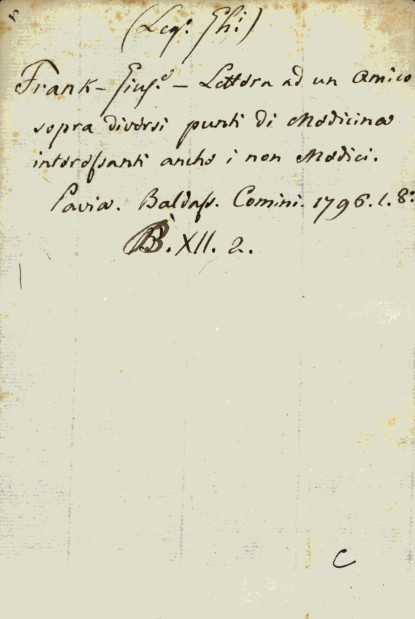 (Leg: Gh:)
Frank - Gius.e - Lettera ad un Amico
sopra diversi punti di Medicina
interessanti anche i non Medici.
Pavia. Baldass. Comini. 1796. 1. 8:
B. XII. 2.
C